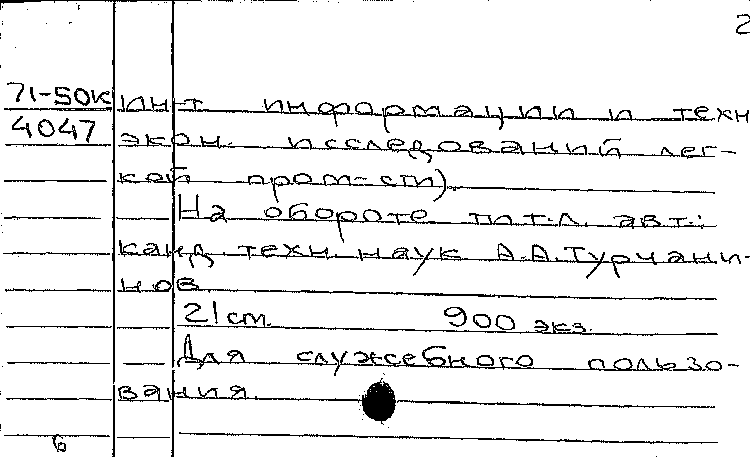 2
71-50к ин-т информации и техн
4047 экон. исследований лег-
кой пром-сти).
На обороте тит.л. авт.:
канд. техн. наук А.А.Турчани-
нов.
21 см. 900 экз.
Для служебного пользо-
вания.
6